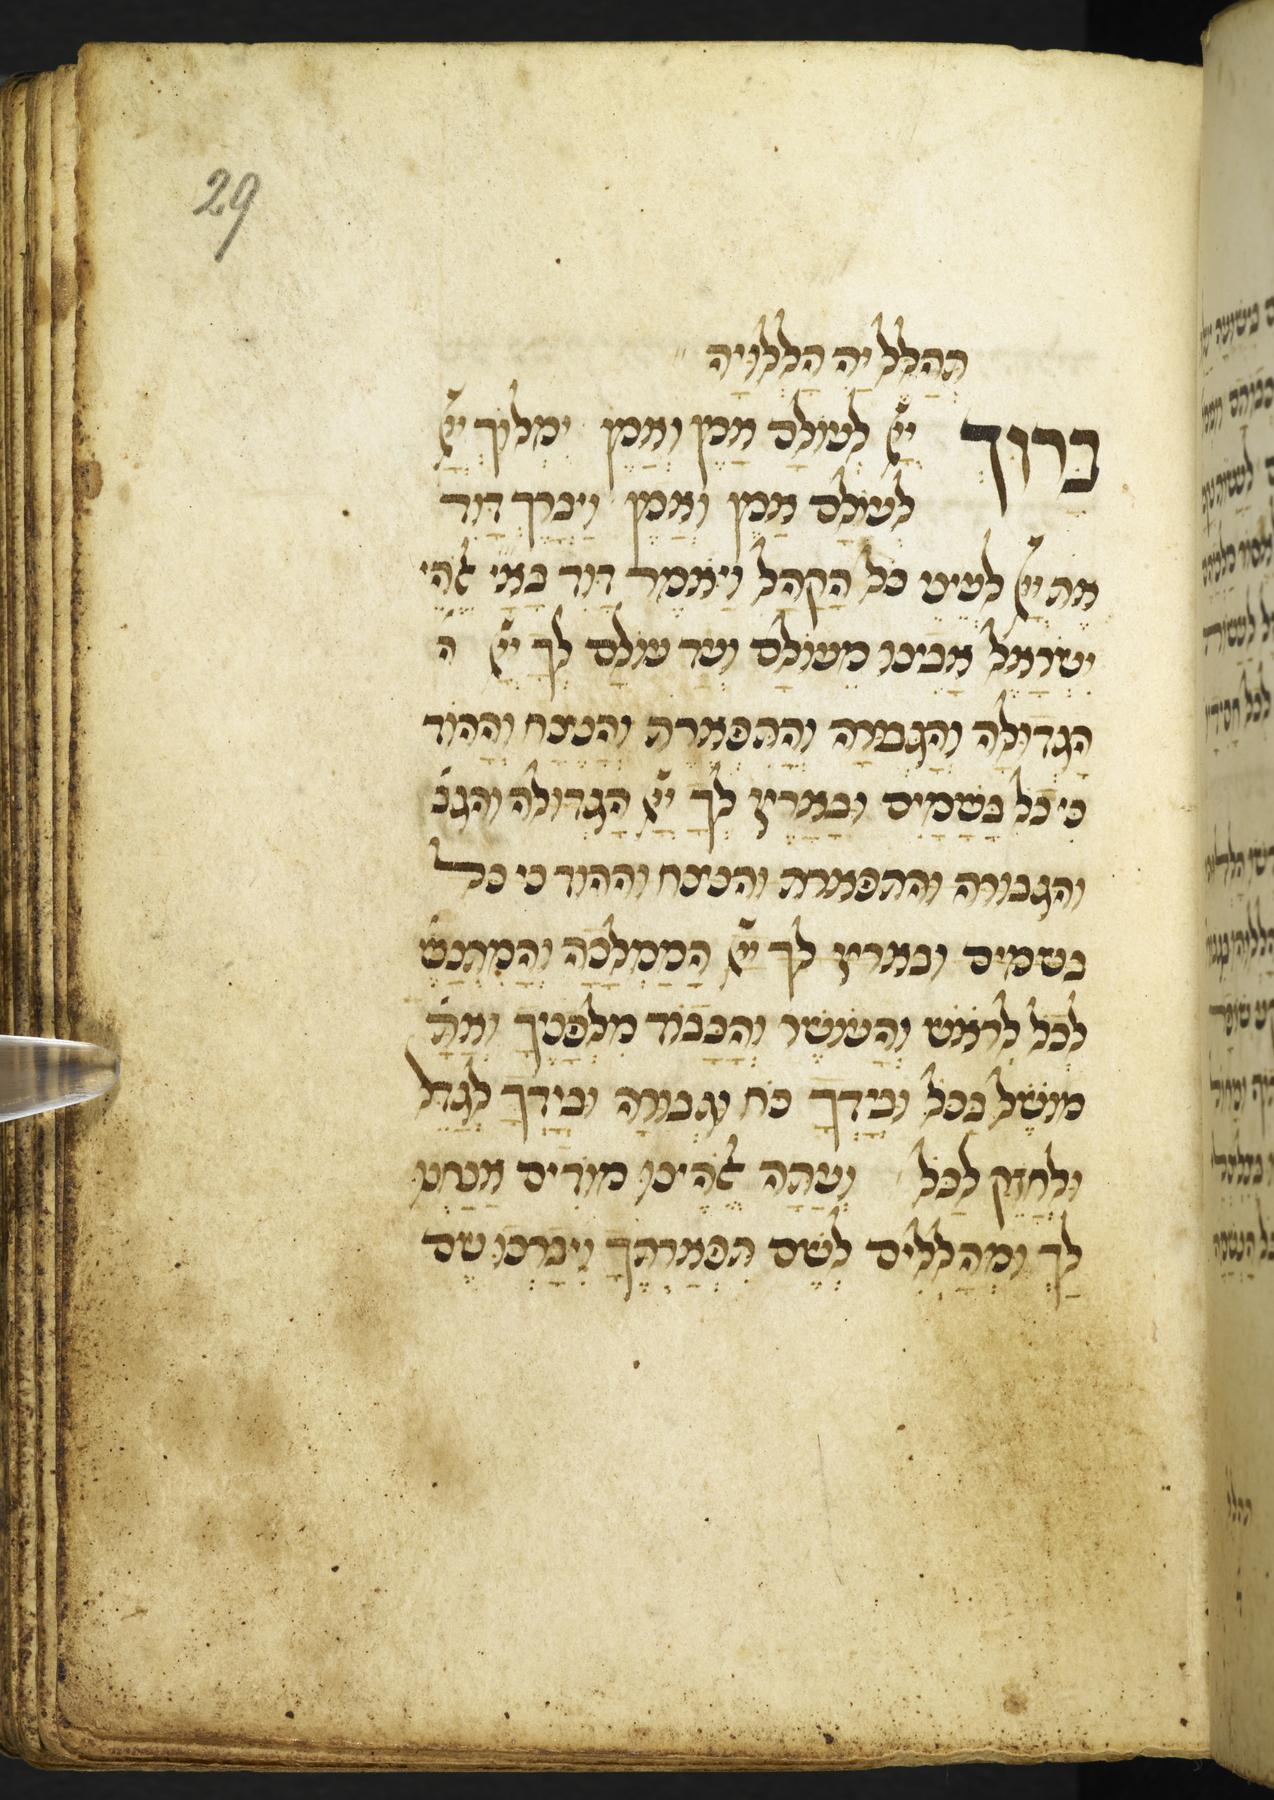 29
תְהַלֵּל יָהּ הַלְלוּיָהּ
בָּרוּךְ יְיָ לְעוֹלָם אָמֵן וְאָמֵן יִמְלוֹךְ יְיָ
לְעוֹלָם אָמֵן וְאָמֵן וַיְבָרֶךְ דָּוִד
אֶת יְיָ לְעֵינֵי כָּל הַקָּהָל וַיֹּאמֶר דָּוִד בָּא״י אֱלֹהֵי
יִשְׂרָאֵל אָבִינוּ מֵעוֹלָם וְעַד עוֹלָם לְךָ יְיָ ה
הַגְדוּלָּה וְהַגְּבוּרָה וְהַתִּפְאֶרֶת וְהַנֵּצַח וְהַהוֹד
כִּי כֹל בַּשָּׁמַיִם וּבָאָרֶץ לְךָ יְיָ הַגְדוּלה והגב
והגבורה והתפארת והנצח וההוד כי כל
בשמים ובארץ לך יְיָ הַמַמְלָכָה וְהַמִתְנַשֵּׂ
לְכֹל לְרֹאשׁ וְהָעוֹשֶׁר וְהַכָּבוֹד מִלְפָנֶיךָ וְאַתָּ
מוֹשֵׁל בַּכֹּל וּבְיָדְךָ כֹּחַ וּגְבוּרָה וּבְיָדְךָ לְגַדֵּל
וּלְחַזֵּק לַכֹּל וְעַתָּה אֱלֹהֵינוּ מוֹדִים אֲנַחְנוּ
לָךְ וּמְהַלְלִים לְשֵׁם תִּפְאַרְתֶּךָ וִיבָרְכוּ שֵׁם